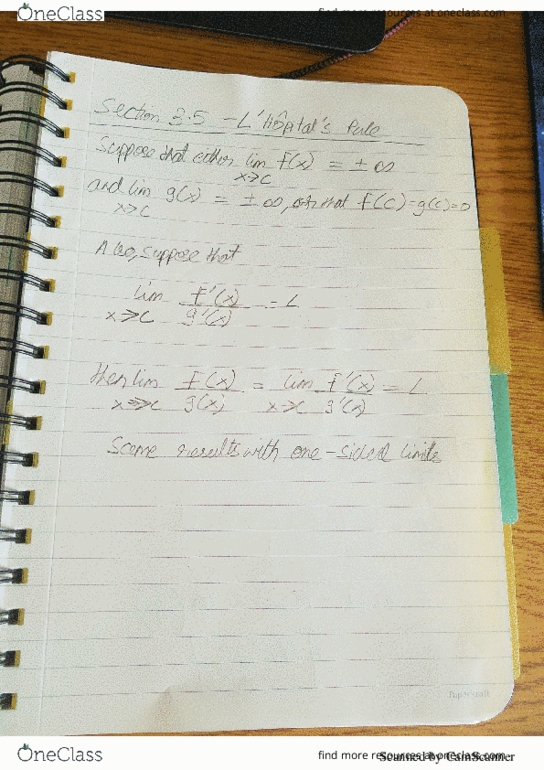 OneClass
find more resources at oneclass.com
Section 3.5 - L'Hôpital's Rule
Suppose that either lim f(x) = ± ∞
x→c
and lim g(x) = ± ∞, or that f(c)=g(c)=0
x→c
Also, suppose that
lim f'(x) = L
x→c g'(x)
then lim f(x) = lim f'(x) = L
x→c g(x) x→c g'(x)
Same results with one-sided limits
OneClass
find more resources at oneclass.com
Scanned by CamScanner